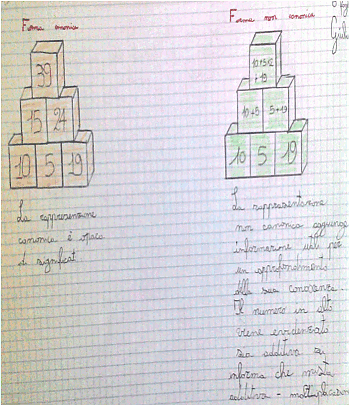 Forma canonica
39
15 24
10 5 19
La rappresenzione
canonica è opaca
di significat
Forma non canonica
10+5×2
+19
10+5 5+19
10 5 19
La rappresentazione
non canonica aggiunge
informazioni utili per
un approfondimento
della sua conoscenza.
Il numero in alto
viene evidenziato
sia additiva sia
informa che mista
additiva - moltiplicazion